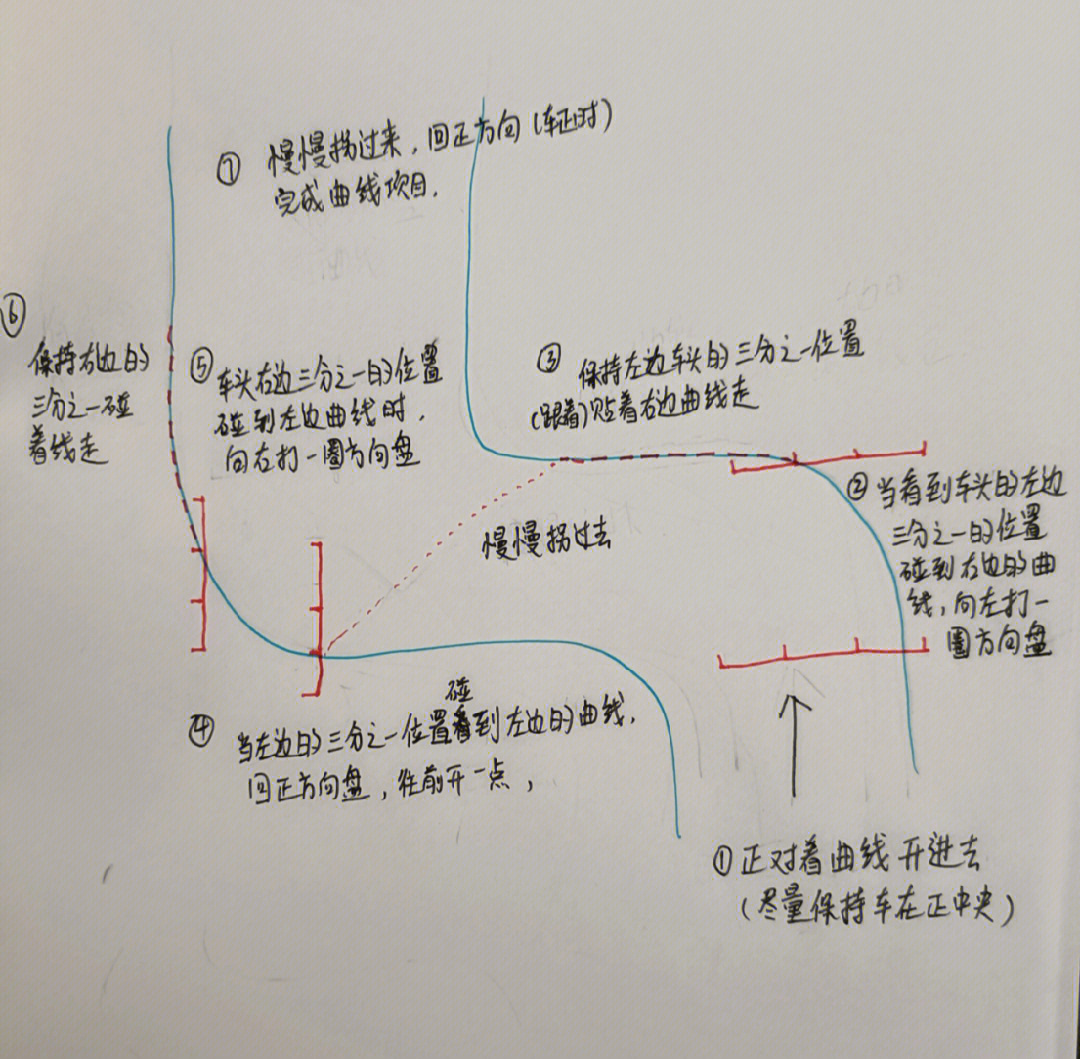 ⑦ 慢慢拐过来，回正方向（车正时）
完成曲线项目．
⑥
保持右边的
三分之一碰
着线走
⑤ 车头右边三分之一的位置
碰到左边曲线时．
向右打一圈方向盘
③ 保持左边车头的三分之一位置
（跟着）贴着右边曲线走
② 当看到车头的左边
三分之一的位置
碰到右边的曲
线，向左打一
圈方向盘
慢慢拐过去
碰
④ 当左边的三分之一位置看到左边的曲线．
回正方向盘，往前开一点，
① 正对着曲线开进去
（尽量保持车在正中央）